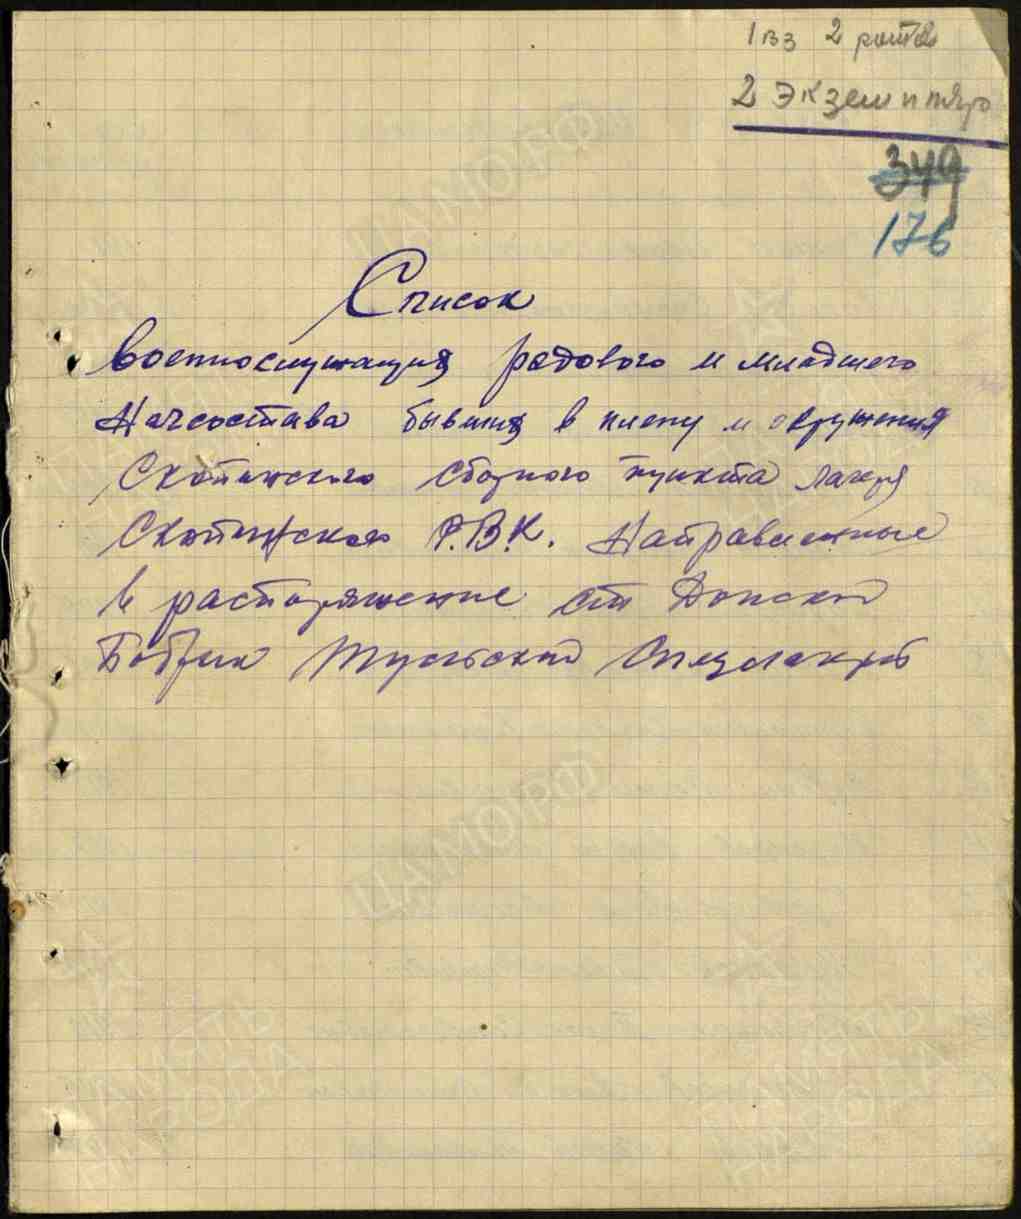 1 вз 2 рота
2 Экземпляр
349
176
Список
Военнослужащих рядового и младшего
Начсостава бывших в плену и окружения
Скопинского сборного пункта лагеря
Скопинского Р.В.К. Направленные
в распоряжение ст Донской
Бобрик Тульской Спецлагерь
ЦАМО РФ
ЦАМО РФ
ПАМЯТЬ
НАРОДА
ПАМЯТЬ
НАРОДА